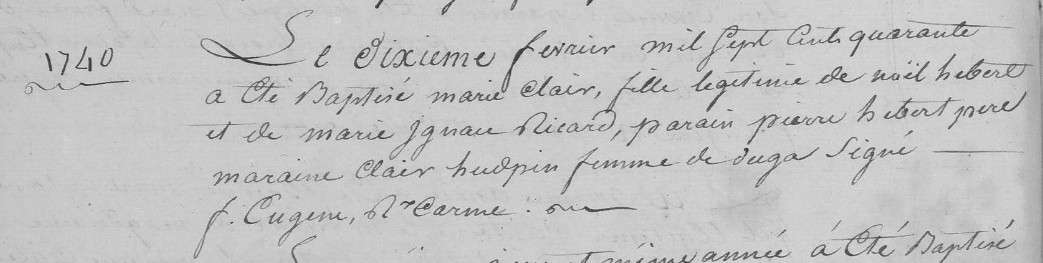 1740
Le Dixieme fevrier mil Sept Cents quarante
a Eté Baptisé marie Clair, fille legitime de noël hebert
et de marie Ignace Ricard, parain pierre hebert pere
maraine Clair hudpin femme de duga Signé
f. Eugene, Rr Carme.
même année à Eté Baptisé